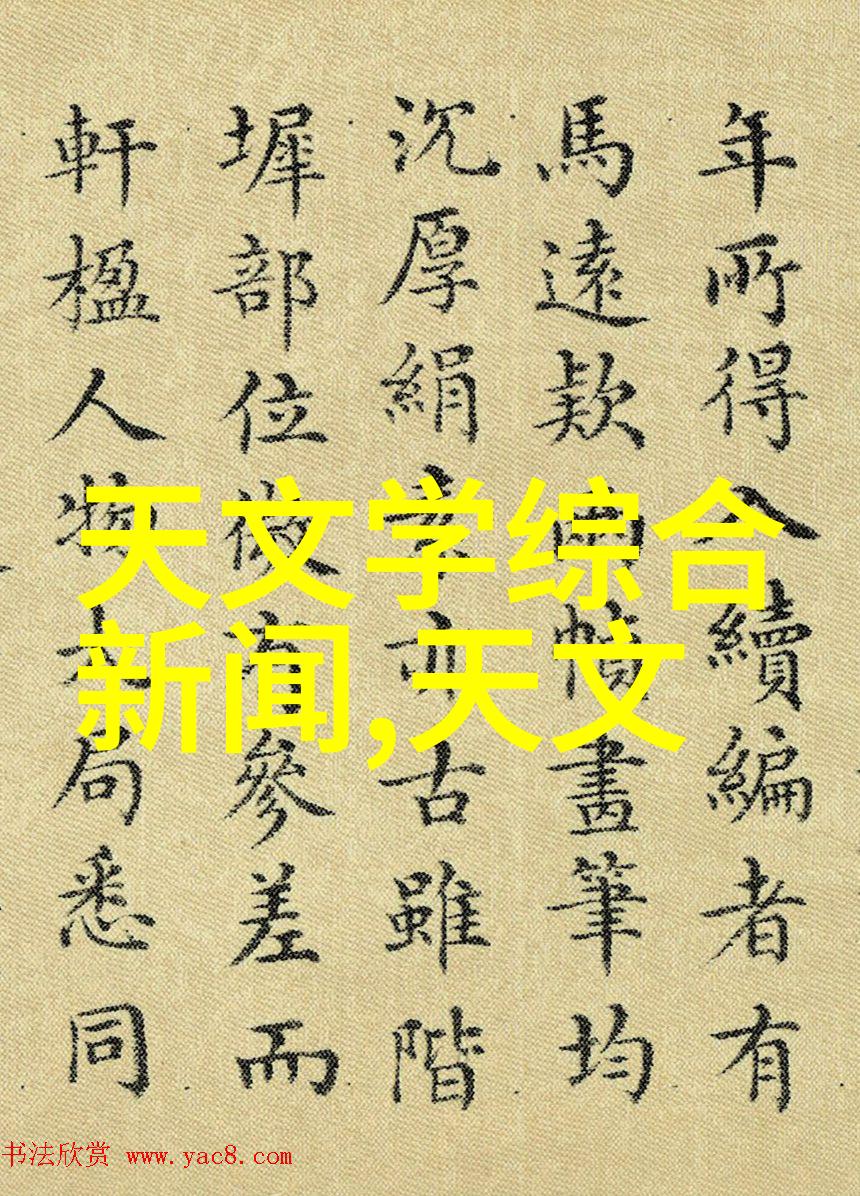 年所得入續編者有
馬遠款兩幀畫筆均
沉厚絹素亦古雖階
墀部位微有參差而
軒楹人物大局悉同
天文学综合
新闻,天文
书法欣赏 www.yac8.com